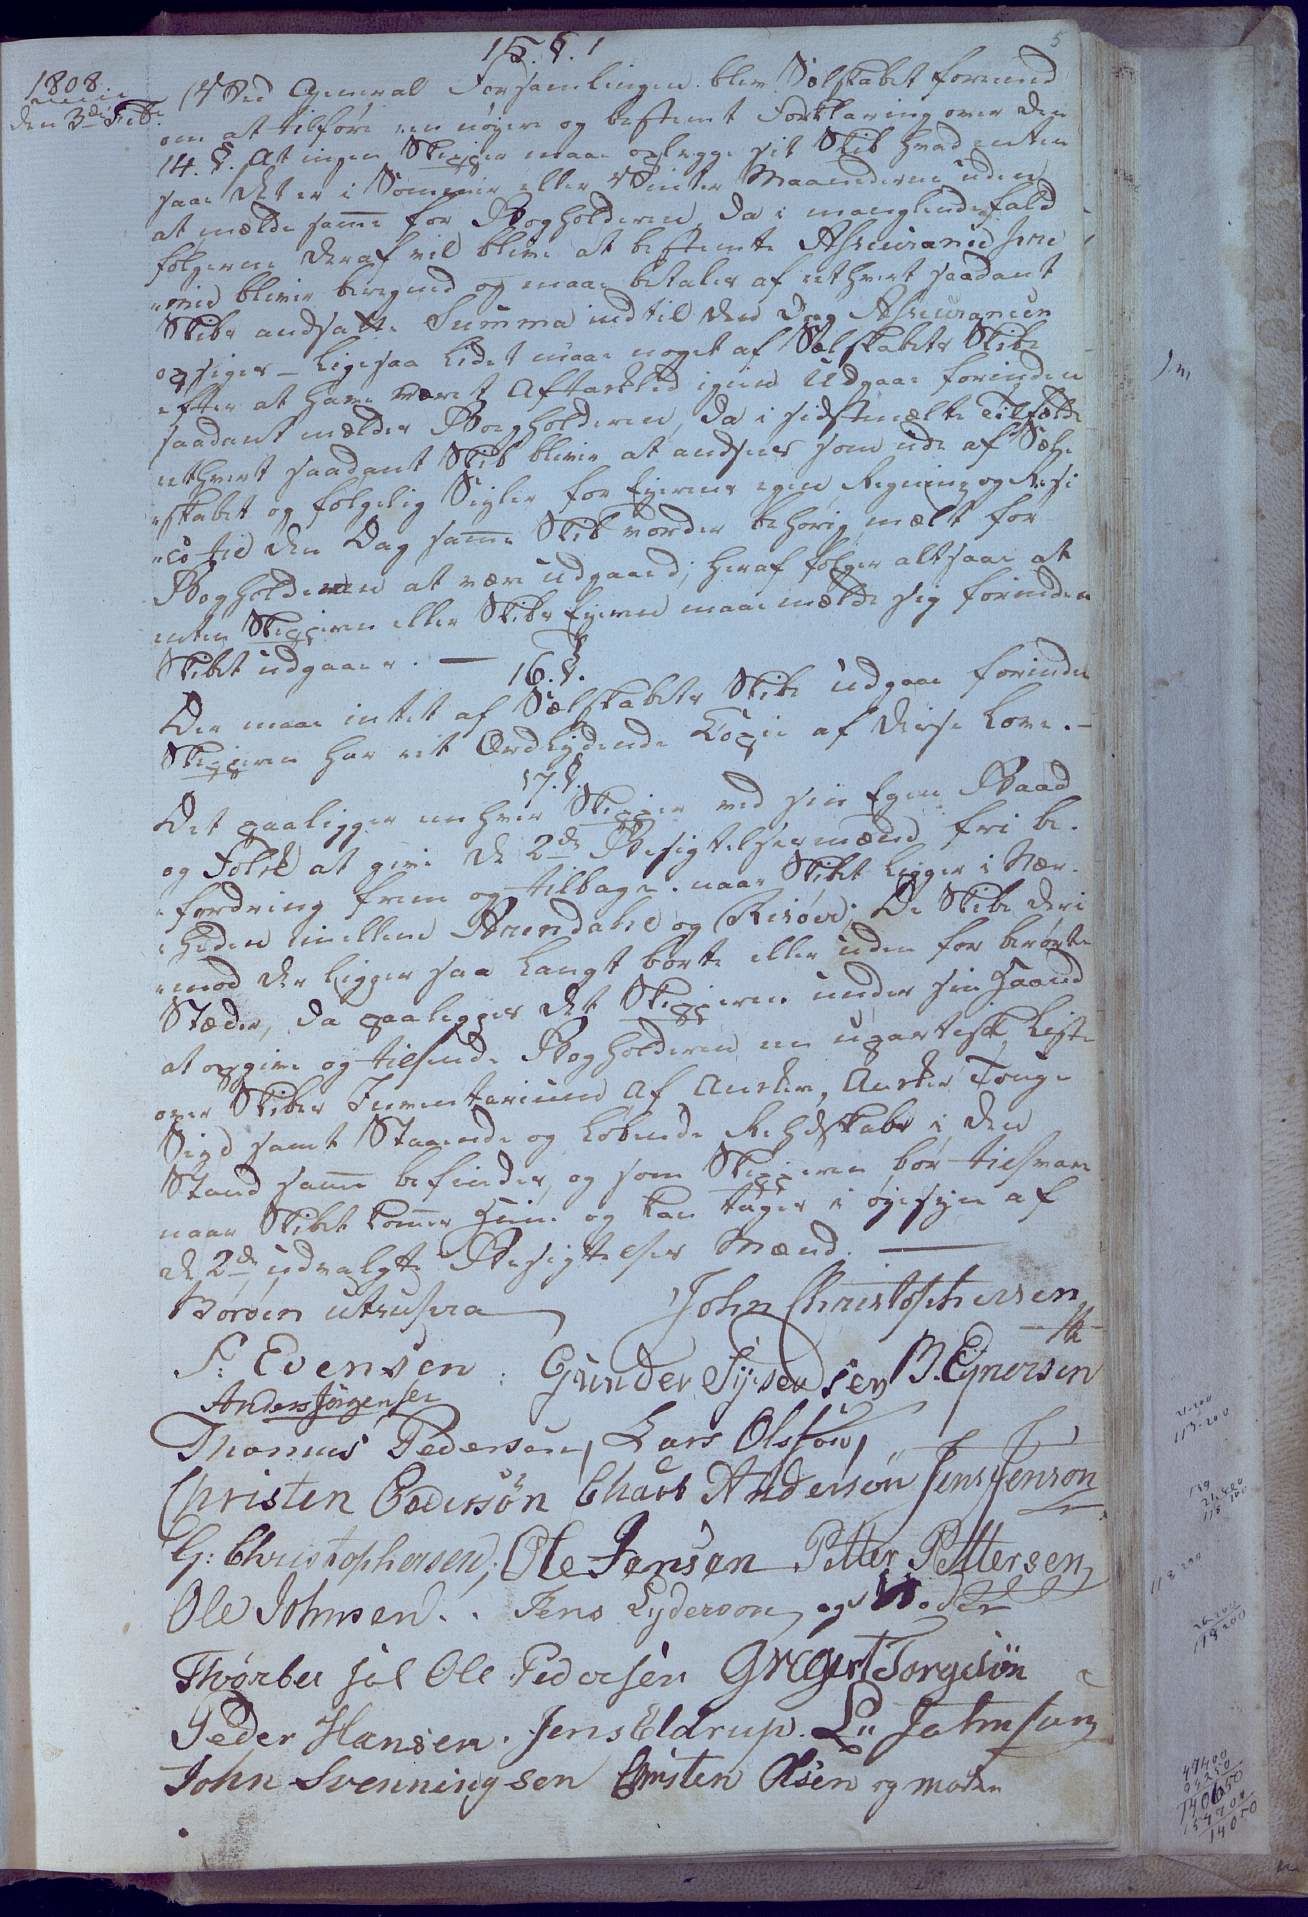 5
15. §.
1808
den 3de Feb
Ved General Forsamlingen blev Selskabet foreened
om at tilføre en nøyere og bestemt Forklaring over den
14. §. At ingen Skipper maae oplegge sit Skib hvad enten
saa det er i Sommer eller Vinter Maanederne uden
at melde samme for Bogholderen, da i manglende fald
følgerne deraf vil blive at bestemte Assurance Præ
mie bliver beregned og maae betales af ethvert saadant
Skibs andsatte Summa ind til den Dag Assurancen
opsiges – Ligesaa lidet maae noget af Selskabets Skibe
efter at have været Aftakled igien Udgaae forinden
saadant melder Bogholderen, da i sidstmælte Tilfælde
ethvert saadant Skib bliver at andsees som ude af Sel
skabet og følgelig Seyler for Eyerens egen Regning og Risi
co til den Dag samme Skib vorder behørig mælt for
Bogholderen at være udgaaed; heraf følger altsaa at
enten Skipperen eller Skibs Eyeren maae melde sig forinden
Skibet udgaaer. —
16. §.
Der maae intet af Selskabets Skibe udgaae forinden
Skipperen har eit Ordlydende Copie af disse Love. –
17. §.
Det paaligger en hver Skipper med sin Egen Baad
og Folk at give de 2de Besigtelsesmænd fri be-
fordring frem og tilbage. naar Skibet ligger i Nær-
heden imellem Arendahl og Risøer; De Skibe deri
mod der ligger saa langt borte eller uden for berørte
Stæder, da paaligger det Skipperen under sin Haand
at opgive og tilsende Bogholderen en upartisk Liste
over Skibes Inventarium af Ankere, Anker Touge
Seyl samt Staaende og Løbende Redskab i den
Stand samme befindes, og som Skipperen bør tilsvare
naar Skibet kommer Hiem og kan tages i øyesyn af
de 2de udvalgte Besigtelses Mænd. —
Borøen utsupra
John Christophersen
S: Evensen. Gunder Syversen B. Eynersen
Anders Jørgensen
Thomas Pedersen, Lars Olsson,
Christen Pedersøn Chars Andersøn Jens Jensøn
G: Christophersen, Ole Jensen Petter Pettersen
Ole Johnsen. Jens Lydersøn og Moder
Thorber søl Ole Pedersen Gregert Torgesøn
Peder Hansen. Jens Eldrup. L: Johnsøn
John Svenningsen Christen Olsen og Moder